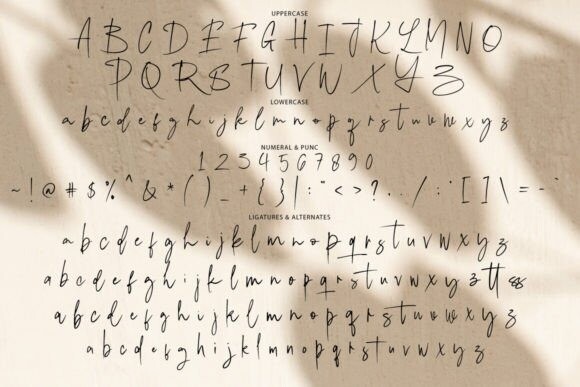 UPPERCASE
A B C D E F G H I J K L M N O
P Q R S T U V W X Y Z
LOWERCASE
a b c d e f g h i j k l m n o p q r s t u v w x y z
NUMERAL & PUNC
1 2 3 4 5 6 7 8 9 0
~ ! @ # $ % ^ & * ( ) _ + { } | : " < > ? , . / : ' [ ] \ = - `
LIGATURES & ALTERNATES
a b c d e f g h i j k l m n o p q r s t u v w x y z
a b c d e f g h i j k l m n o p q r s t u v w x y z tt ss
a b c d e f g h i j k l m n o p q r s t u v w x y z
a b c d e f g h i j k l m n o p q r s t u v w x y z